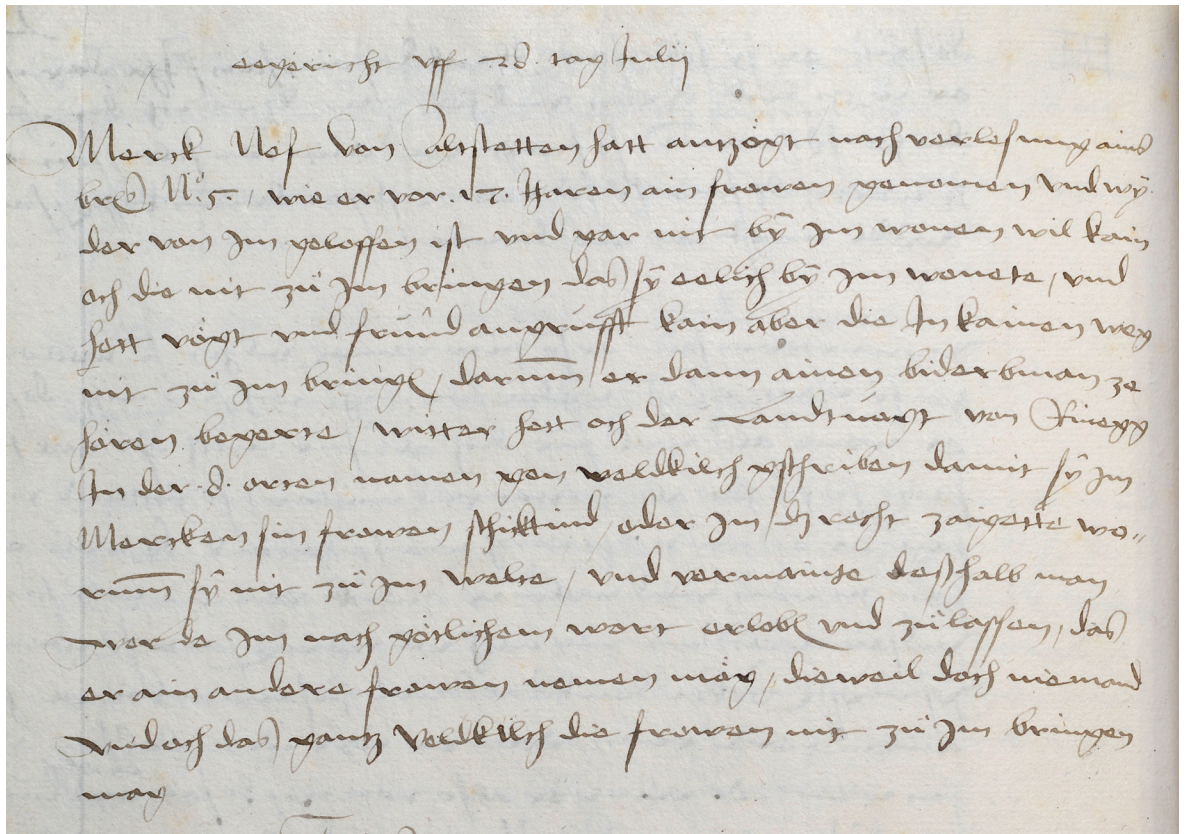 eegericht uff 28. tag Julii
Merck Nef von altstetten hatt antzögt noch verlesung ains
brs No. 5. / wie er vor .17. Jaren ain frowen genomen und wÿ
der von Im geloffen ist und gar nit bÿ Im wonen wil kain
och die nit zů Im bringen das sÿ eelich bÿ Im wonete / und
hett vögt und fründ angrüfft kain aber die In kainen weg
nit zů Im bringen / darumm er dann ainen biderbman ze
hören begerte / witter hett och der Landtvogt von Rinegg
In der .8. orten namen gen veldkilch gschriben damit sÿ Im
Mercken sin frowen schiktind / oder Im dz recht zaigette wo-
rumm sÿ nit zů Im welte / und vermainte deshalb man
werde Im nach götlichem wort erloben und zůlassen, das
er ain andere frowen nemen mög / dieweil doch niemand
und och das gantz Veldkilch die frowen nit zů Im bringen
mag